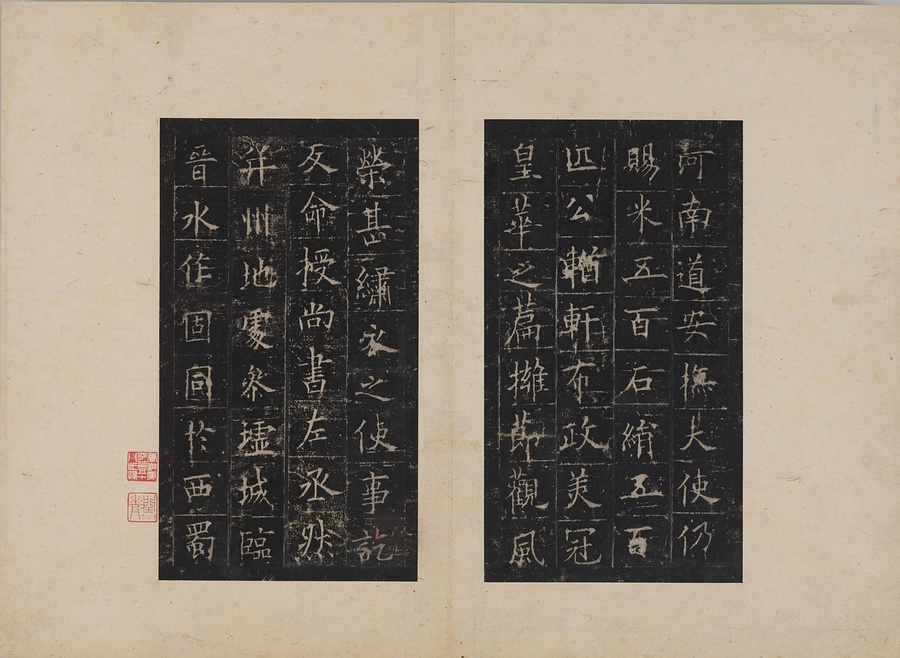 河南道安撫大使仍
賜米五百石絹五百
匹公輶軒布政美冠
皇華之篇擁節觀風
榮甚繡衣之使事訖
反命授尚書左丞然
并州地處參墟城臨
晉水作固同於西蜀